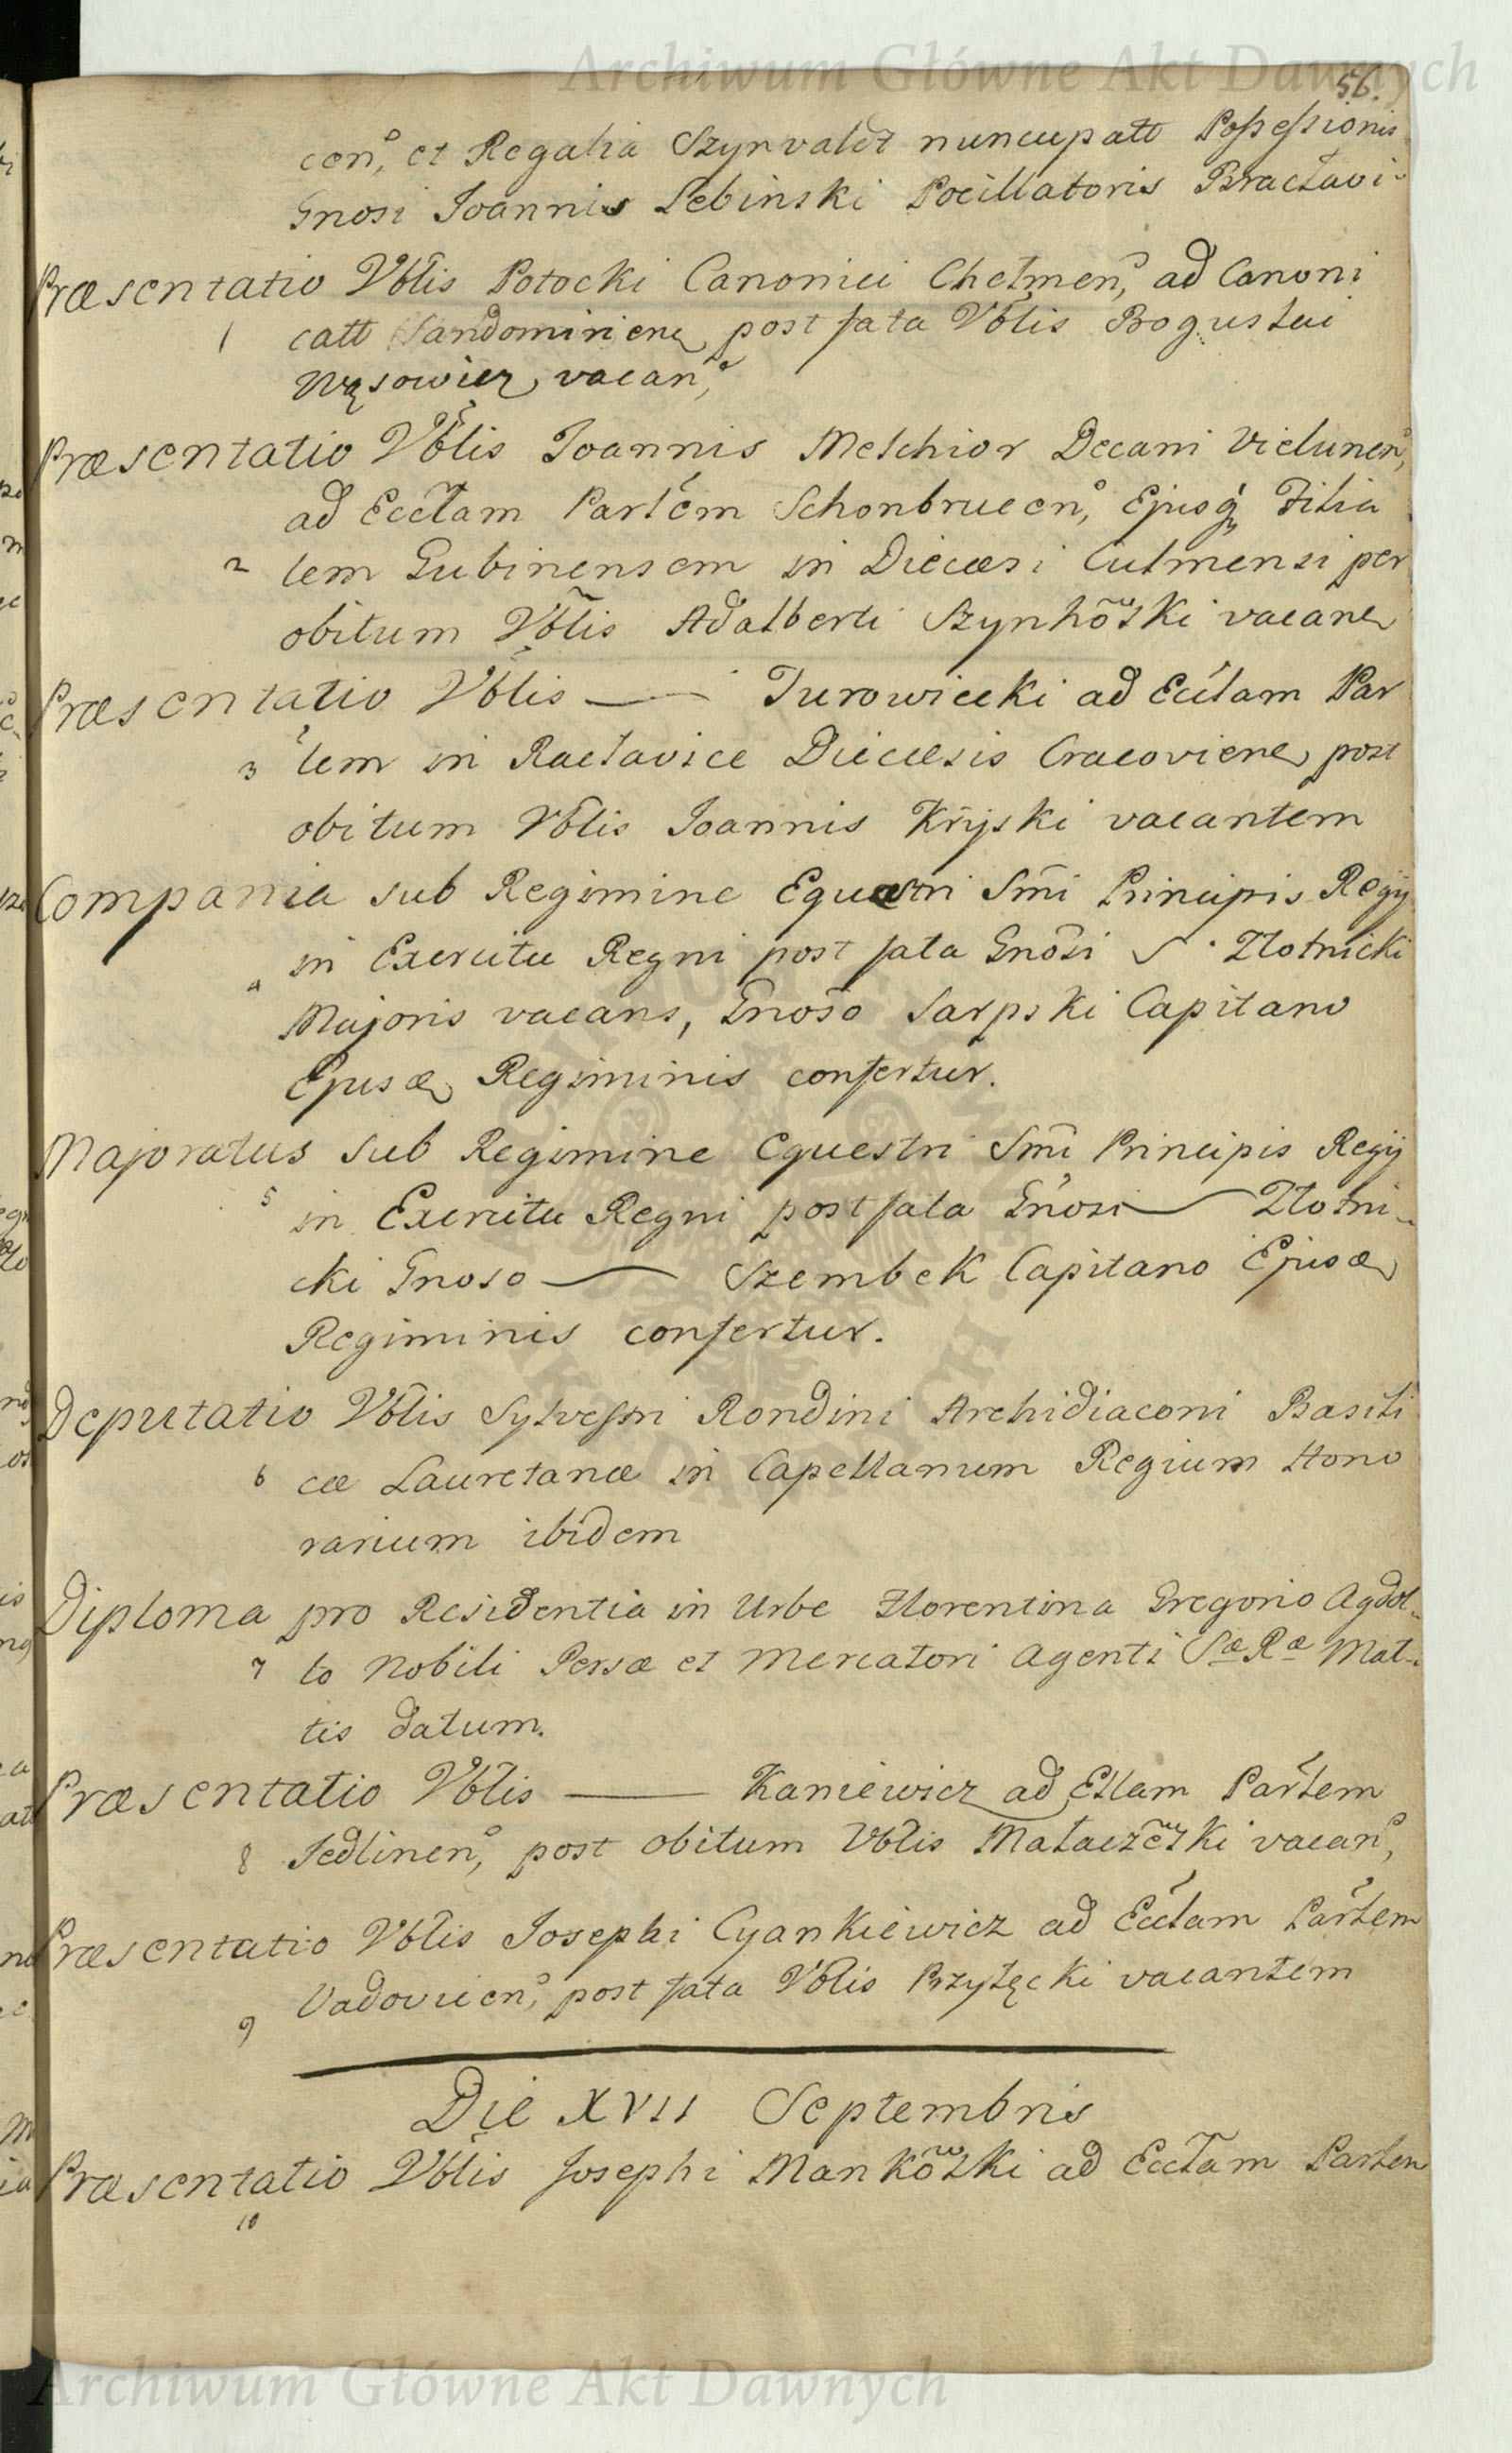 Archiwum Główne Akt Dawnych
56.
cen, et Regalia Szynvaldt nuncupatt Possessionis
Gnosi Joannis Lebinski Pocillatoris Bracłavi-
Præsentatio Vblis Potocki Canonici Chełmen, ad Canoni
1 catt Sandomirien post fata Vblis Bogusłai
Wąsowicz, vacan,
Præsentatio Vblis Joannis Melchior Decani Vielunen,
ad Ecctam Partem Schonbrucen, Ejusq Filia
2 lem Gubinensem in Diecæsi Culmensi per
obitum Vblis Adalberti Szynkowski vacane
Præsentatio Vblis — Turowiecki ad Ecctam Par
3 tem in Racłavice Diecæsis Cracoviene post
obitum Vblis Joannis Kryski vacantem
Compania sub Regimine Equestri Smi Principis Regij
4 in Exercitu Regni post fata Gnosi — Złotnicki
Majoris vacans, Gnoso Sarpski Capitano
Ejusdæ Regiminis confertur.
Majoratus sub Regimine Equestri Smi Principis Regij
5 in Exercitu Regni post fata Gnosi — Złotni-
cki Gnoso — Szembek Capitano Ejusdæ
Regiminis confertur.
Deputatio Vblis Sylvestri Rondini Archidiaconi Basili
6 cæ Lauretanæ in Capellanum Regium Hono
rarium ibidem
Diploma pro Residentia in Urbe Florentina Gregorio Agdol-
7 lo Nobili Persæ et Mercatori Agenti Sæ Ræ Mat-
tis datum.
Præsentatio Vblis — Kaniewicz ad Ecllam Partem
8 Jedlinen, post obitum Vblis Małaczewski vacan,
Præsentatio Vblis Josephi Cyankiewicz ad Ecctam Partem
9 Vadovicen, post fata Vblis Przyłęcki vacantem
Die XVII Septembris
Præsentatio Vblis Josephi Mankowski ad Ecctam Partem
10
Archiwum Główne Akt Dawnych